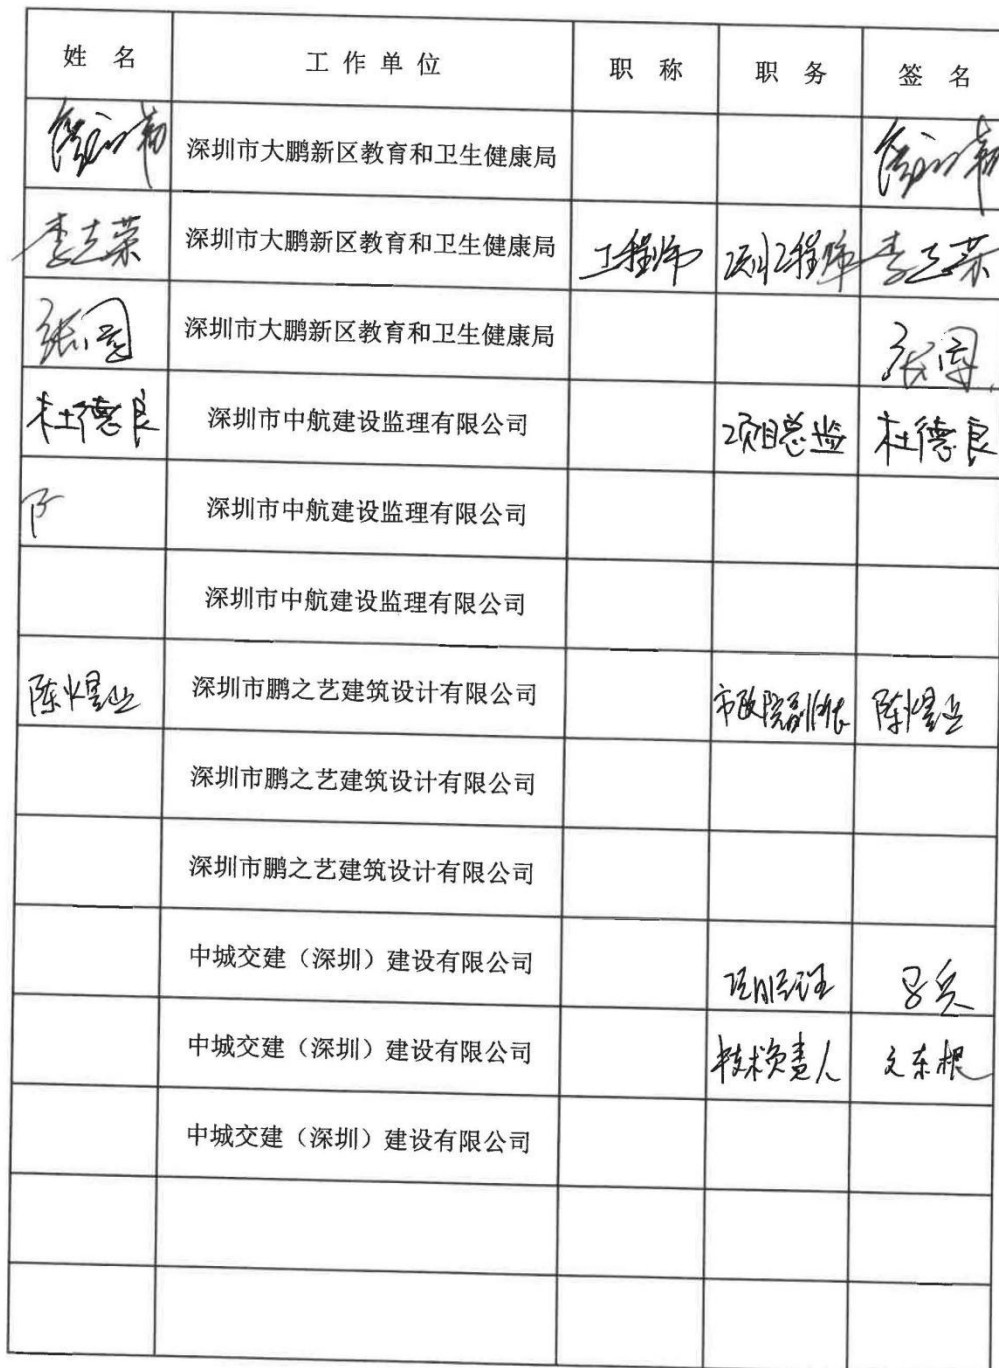 姓 名 工 作 单 位 职 称 职 务 签 名
深圳市大鹏新区教育和卫生健康局
李志荣 深圳市大鹏新区教育和卫生健康局 工程师 项目工程师 李志荣
深圳市大鹏新区教育和卫生健康局
杜德良 深圳市中航建设监理有限公司 项目总监 杜德良
深圳市中航建设监理有限公司
深圳市中航建设监理有限公司
陈煜业 深圳市鹏之艺建筑设计有限公司 市政院副院长 陈煜业
深圳市鹏之艺建筑设计有限公司
深圳市鹏之艺建筑设计有限公司
中城交建（深圳）建设有限公司 项目经理
中城交建（深圳）建设有限公司 技术负责人 文东根
中城交建（深圳）建设有限公司